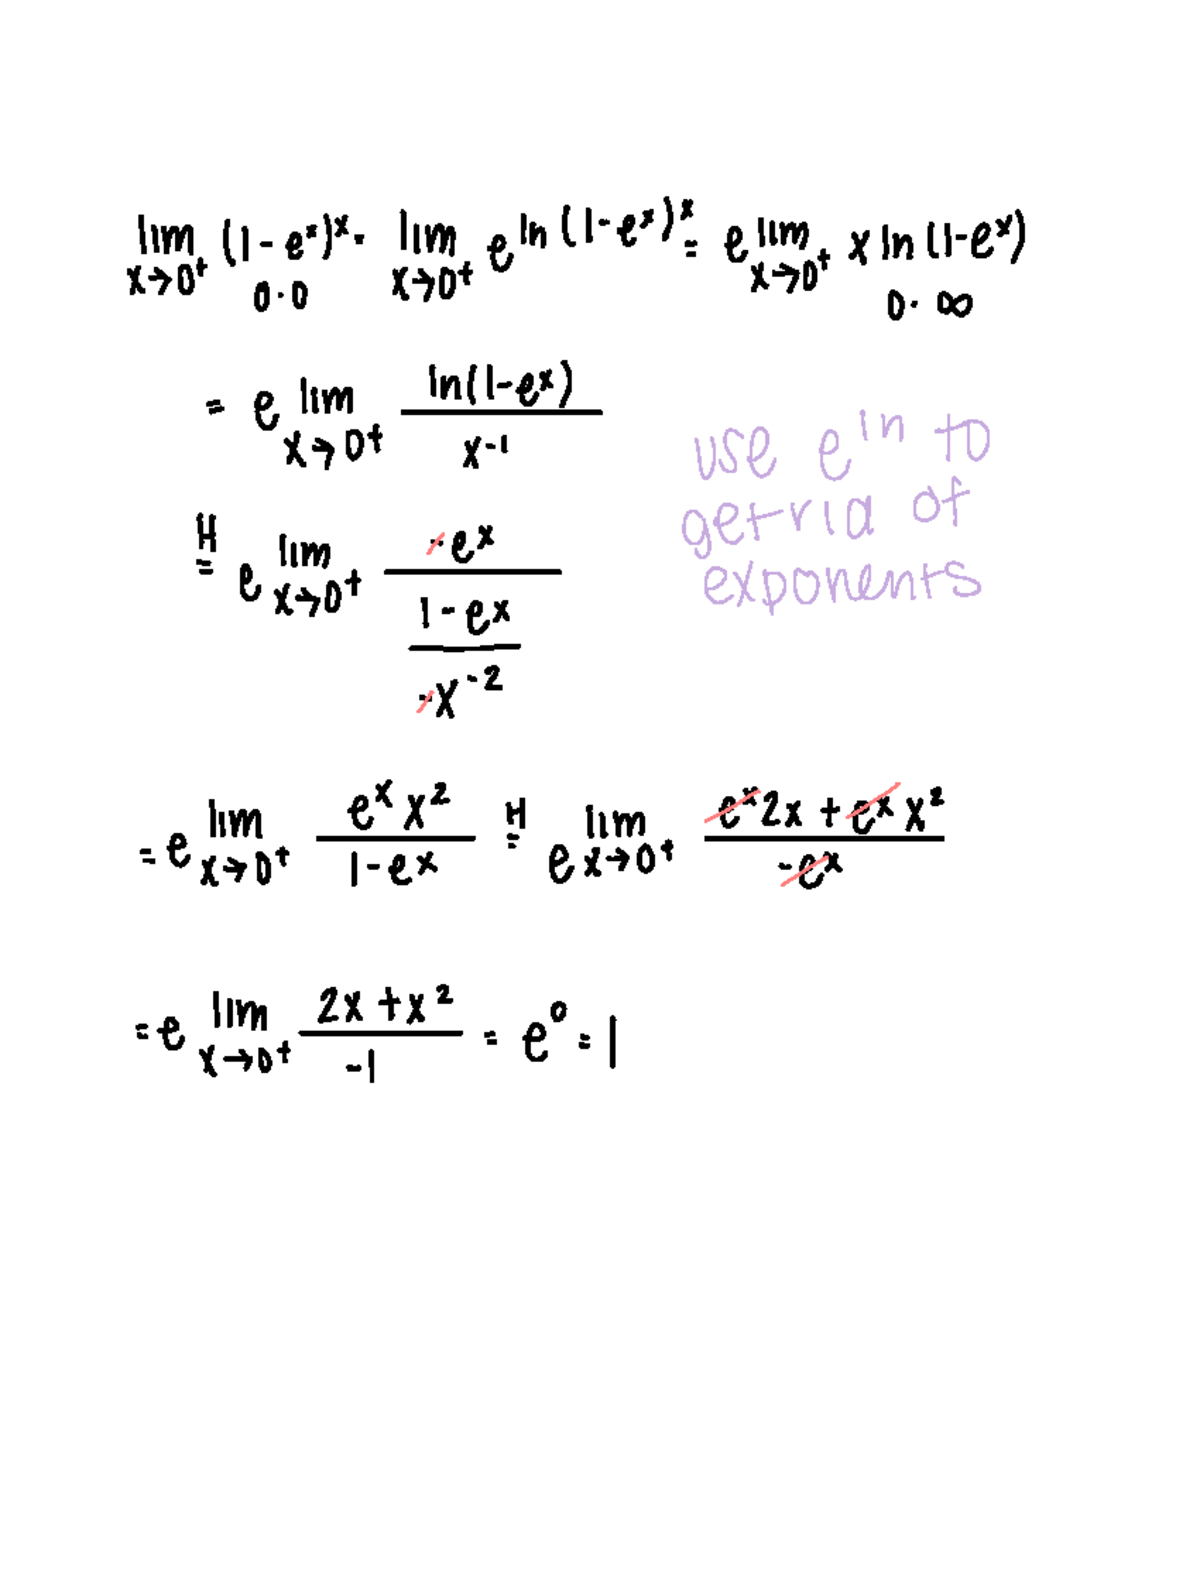 lim x→0⁺ (1-eˣ)ˣ = lim x→0⁺ e^ln(1-eˣ)ˣ = e^lim x→0⁺ x ln(1-eˣ)
0·0 0·∞
= e^lim x→0⁺ ln(1-eˣ) / x⁻¹
use e^ln to
get rid of
exponents
H= e^lim x→0⁺ -eˣ / 1-eˣ / -x⁻²
= e^lim x→0⁺ eˣx² / 1-eˣ H= e^lim x→0⁺ eˣ2x + eˣx² / -eˣ
= e^lim x→0⁺ 2x+x² / -1 = e⁰ = 1